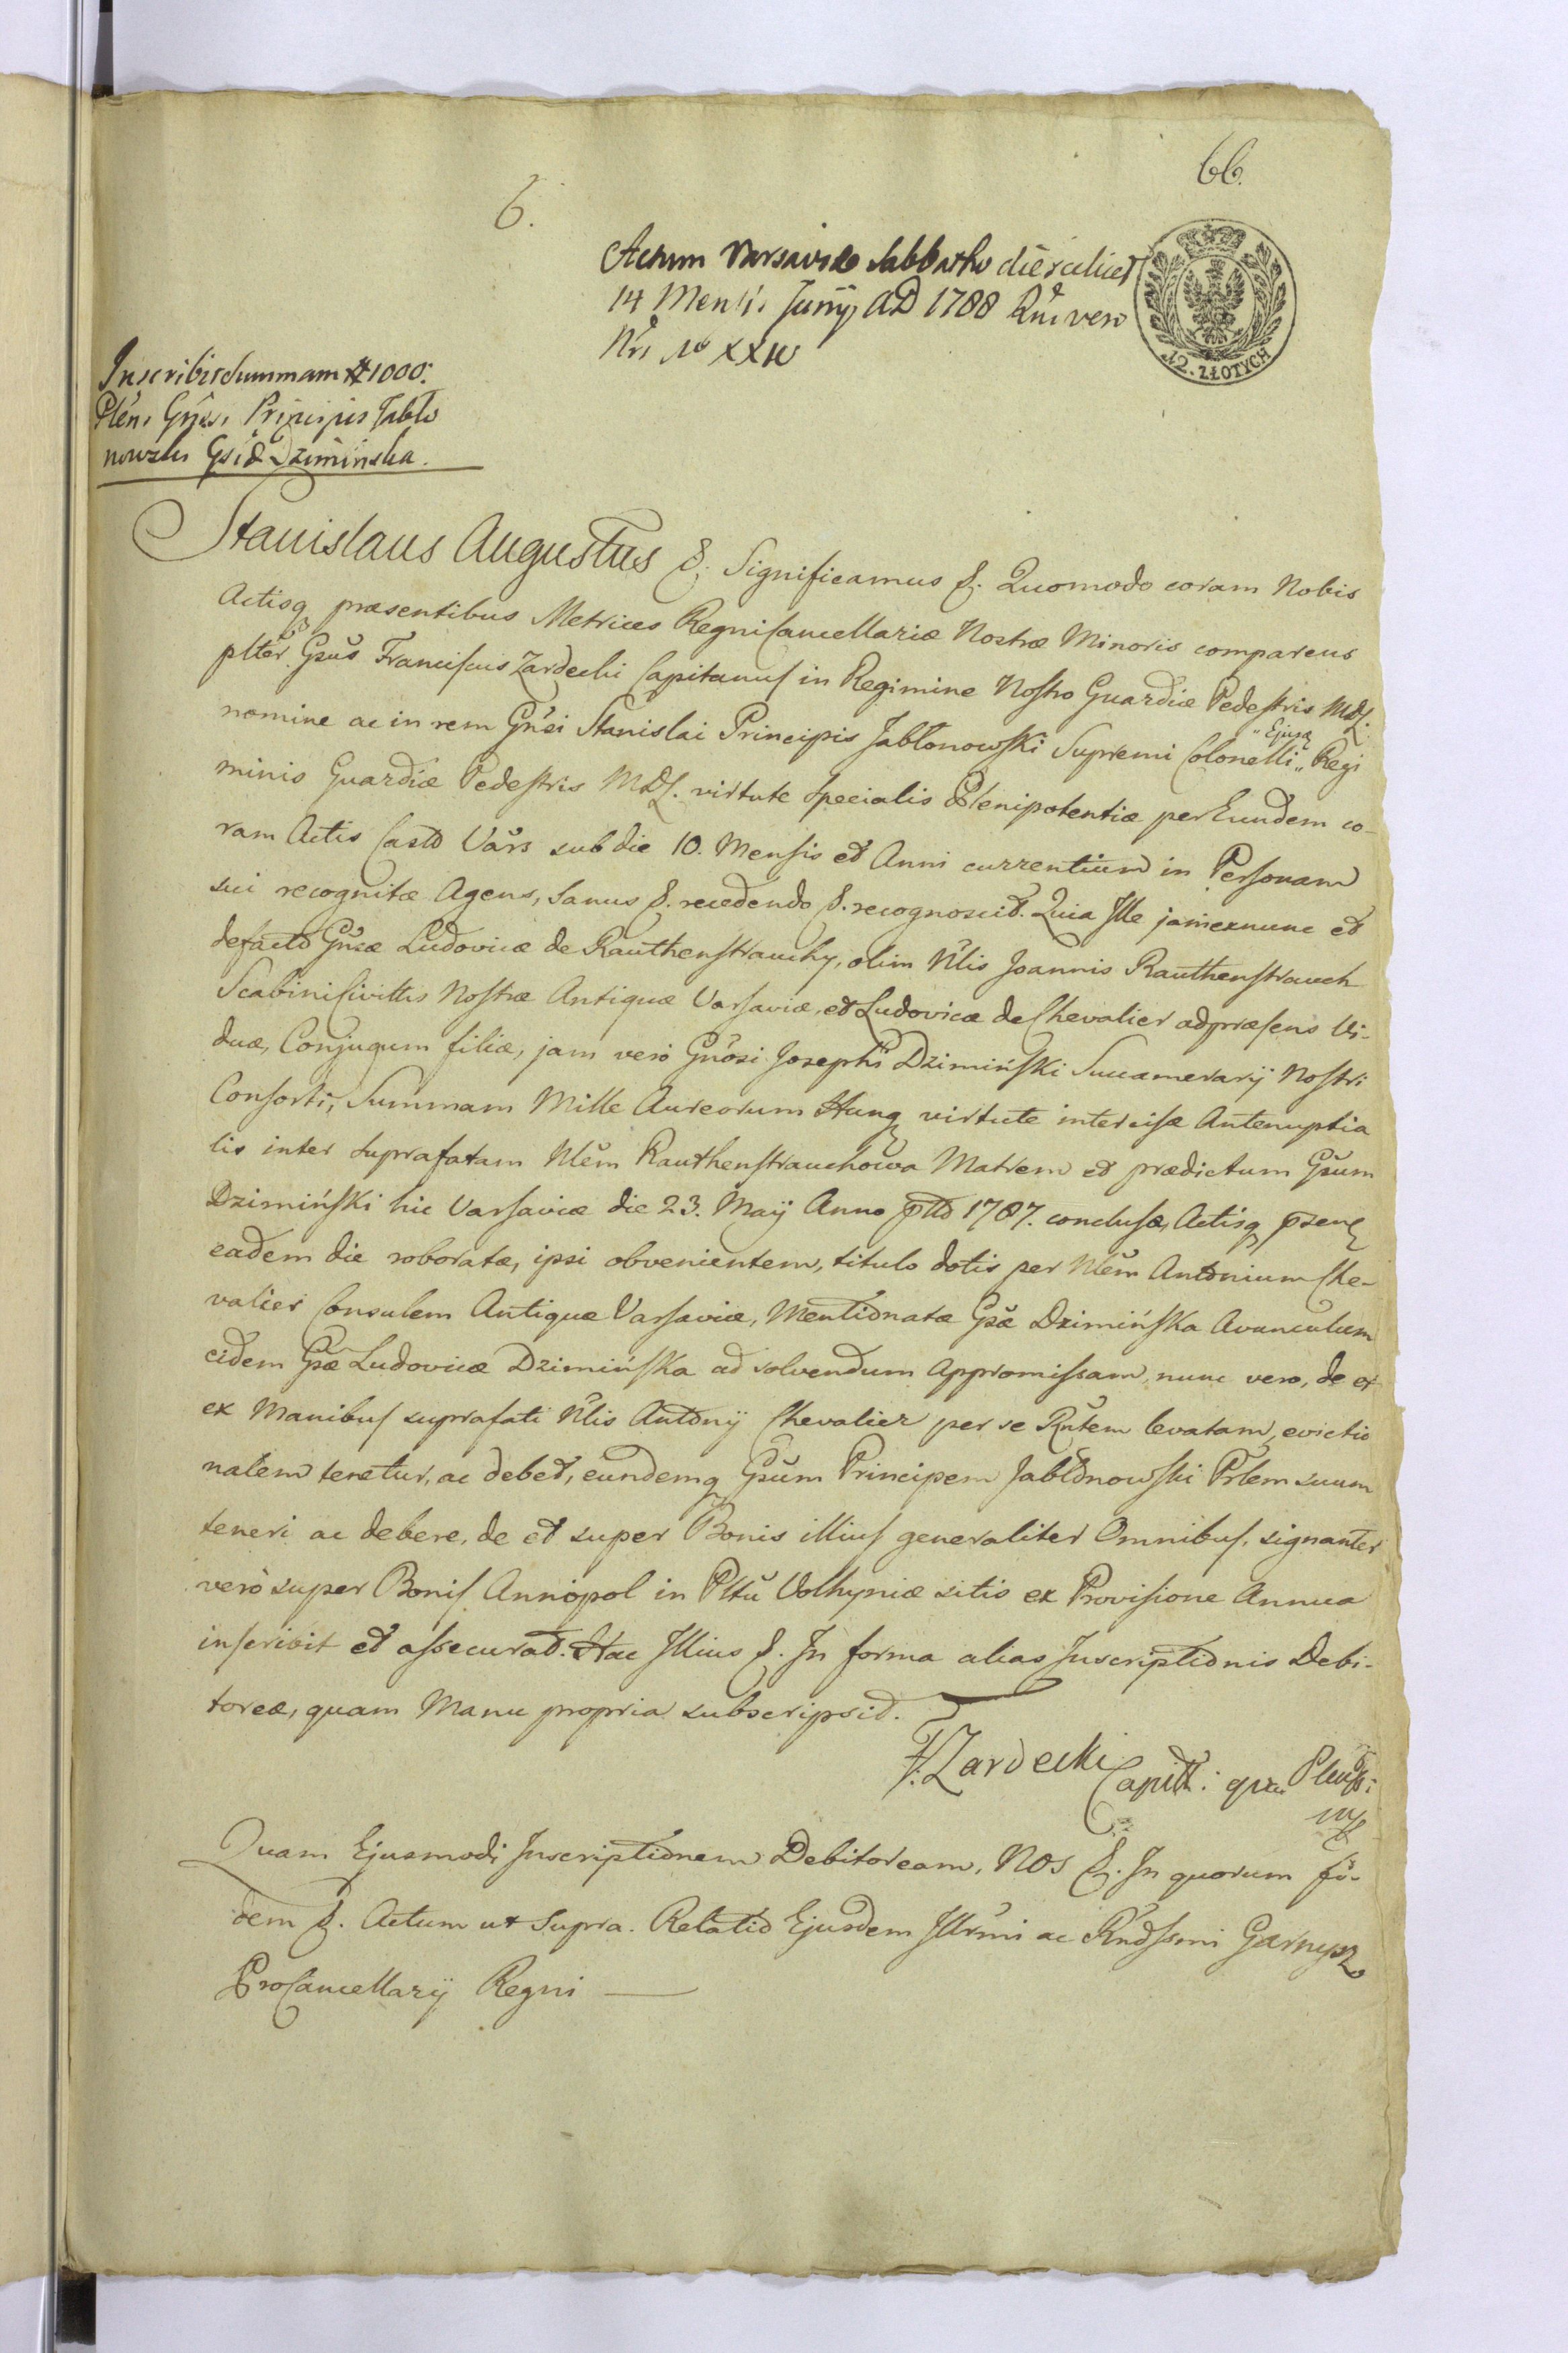 66.
6.
Actum Varsaviæ Sabbatho die scilicet
14 Mensis Junij AD 1788 Rni vero
Nri No XXIV
12. ZŁOTYCH
Inscribit summam # 1000.
Plen. Gnsi. Principis Jabło
nowski Gsæ Dzimińska.
Stanislaus Augustus &. Significamus &. Quomodo coram Nobis
Actisq præsentibus Metrices Regni Cancellariæ Nostræ Minoris comparens
plter Gsus Franciscus Zardecki Capitanus in Regimine Nostro Guardiæ Pedestris MDL.
nomine ac in rem Gnsi Stanislai Principis Jabłonowski Supremi Colonelli „ Ejusq „ Regi
minis Guardiæ Pedestris MDL. virtute specialis Plenipotentiæ per Eundem co-
ram Actis Castr Vars sub die 10. Mensis et Anni currentium in Personam
sui recognitæ Agens, sanus &. recedendo &. recognoscit. Quia Ille jam exnunc et
defacto Gnsæ Ludovicæ de Rauthenstrauchy, olim Nlis Joannis Rauthenstrauch
Scabini Civittis Nostræ Antiquæ Varsaviæ, et Ludovicæ de Chevalier adpræsens Vi-
duæ, Conjugum filiæ, jam vero Gnosi Josephi Dzimiński Succamerarij Nostri
Consorti, Summam Mille Aureorum Hung virtute intercisæ Antenuptia
lis inter suprafatam Nlem Rauthenstrauchowa Matrem et prædictum Gsum
Dzimiński hic Varsaviæ die 23. Maij Anno ptto 1787. conclusæ, Actisq psen
eadem die roboratæ, ipsi obvenientem, titulo dotis per Nlem Antonium Che-
valier Consulem Antiquæ Varsaviæ, Mentionatæ Gsæ Dzimińska Avunculum
eidem Gsæ Ludovicæ Dzimińska ad solvendum appromissam, nunc vero, de et
ex Manibus suprafati Nlis Antonij Chevalier per se Rntem levatam, evictio
nalem tenetur, ac debet, eundemq Gsum Principem Jabłonowski Prlem suum
teneri ac debere, de et super Bonis illius generaliter Omnibus, signanter
vero super Bonis Annopol in Pltu Volhyniæ sitis ex Provisione Annua
inscribit et assecurat. Hac Illius &. In forma alias Inscriptionis Debi-
toreæ, quam Manu propria subscripsit.
F. Zardecki Capitt: qua Plenps:
mp
Quam Ejusmodi Inscriptionem Debitoream, Nos &. In quorum fi-
dem &. Actum ut supra. Relatio Ejusdem Illrmi ac Rndssmi Garnysz
ProCancellarij Regni